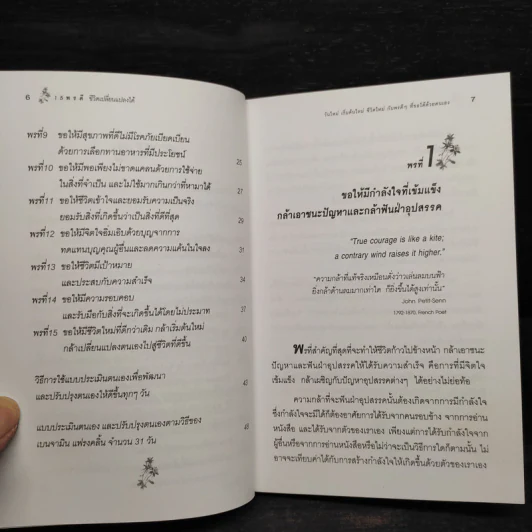 6 เ ก ท ร ดี ชีวิตเปลี่ยนแปลงได้
พรที่9 ขอให้มีสุขภาพที่ดีไม่มีโรคภัยเบียดเบียน
ด้วยการเลือกทานอาหารที่มีประโยชน์ 25
พรที่10 ขอให้มีพอเพียงไม่ขาดแคลนด้วยการใช้จ่าย
ในสิ่งที่จำเป็น และไม่ใช้มากเกินกว่าที่หามาได้
พรที่11 ขอให้ชีวิตเข้าใจและยอมรับความเป็นจริง
ยอมรับสิ่งที่เกิดขึ้นว่าเป็นสิ่งที่ดีที่สุด
พรที่12 ขอให้มีจิตใจอิ่มเอิบด้วยบุญจากการ
ทดแทนบุญคุณผู้อื่นและลดความแค้นในใจลง
พรที่13 ขอให้ชีวิตมีเป้าหมาย
และประสบกับความสำเร็จ
พรที่14 ขอให้มีความรอบคอบ
และรับมือกับสิ่งที่จะเกิดขึ้นได้โดยไม่ประมาท 37
พรที่15 ขอให้มีชีวิตใหม่ที่ดีกว่าเดิม กล้าเริ่มต้นใหม่
กล้าเปลี่ยนแปลงตนเองไปสู่ชีวิตที่ดีขึ้น 40
วิธีการใช้แบบประเมินตนเองเพื่อพัฒนา
และปรับปรุงตนเองให้ดีขึ้นทุกๆ วัน
แบบประเมินตนเอง และปรับปรุงตนเองตามวิธีของ
เบนจามิน แฟรงคลิ้น จำนวน 31 วัน
7
พรที่ 1
ขอให้มีกำลังใจที่เข้มแข็ง
กล้าเอาชนะปัญหาและกล้าฟันฝ่าอุปสรรค
"True courage is like a kite;
a contrary wind raises it higher."
"ความกล้าที่แท้จริงเหมือนดั่งว่าวเล่นลมบนฟ้า
ยิ่งกล้าต้านลมมากเท่าใด ก็ยิ่งขึ้นได้สูงเท่านั้น"
John. Petit-Senn
1792-1870, French Poet
พรที่สำคัญที่สุดที่จะทำให้ชีวิตก้าวไปข้างหน้า กล้าเอาชนะ
ปัญหาและฟันฝ่าอุปสรรคให้ได้รับความสำเร็จ คือการที่มีจิตใจ
เข้มแข็ง กล้าเผชิญกับปัญหาอุปสรรคต่างๆ ได้อย่างไม่ย่อท้อ
ความกล้าที่จะฟันฝ่าอุปสรรคนั้นต้องเกิดจากการมีกำลังใจ
ซึ่งกำลังใจจะมีได้ก็ต้องอาศัยการได้รับจากคนรอบข้าง จากการอ่าน
หนังสือ และได้รับจากตัวของเราเอง เพียงแต่การได้รับกำลังใจจาก
ผู้อื่นหรือจากการอ่านหนังสือหรือไม่ว่าจะเป็นวิธีการใดก็ตามนั้น ไม่
อาจจะเทียบค่าได้กับการสร้างกำลังใจให้เกิดขึ้นด้วยตัวของเราเอง